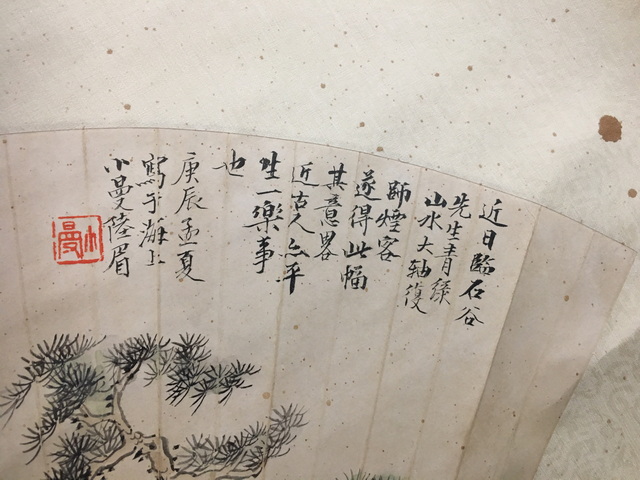 近日臨石谷
先生青綠
山水大軸復
師煙客
遂得此幅
其意畧
近古人亦平
生一樂事
也
庚辰孟夏
寫于滬上
小曼陸眉
小曼